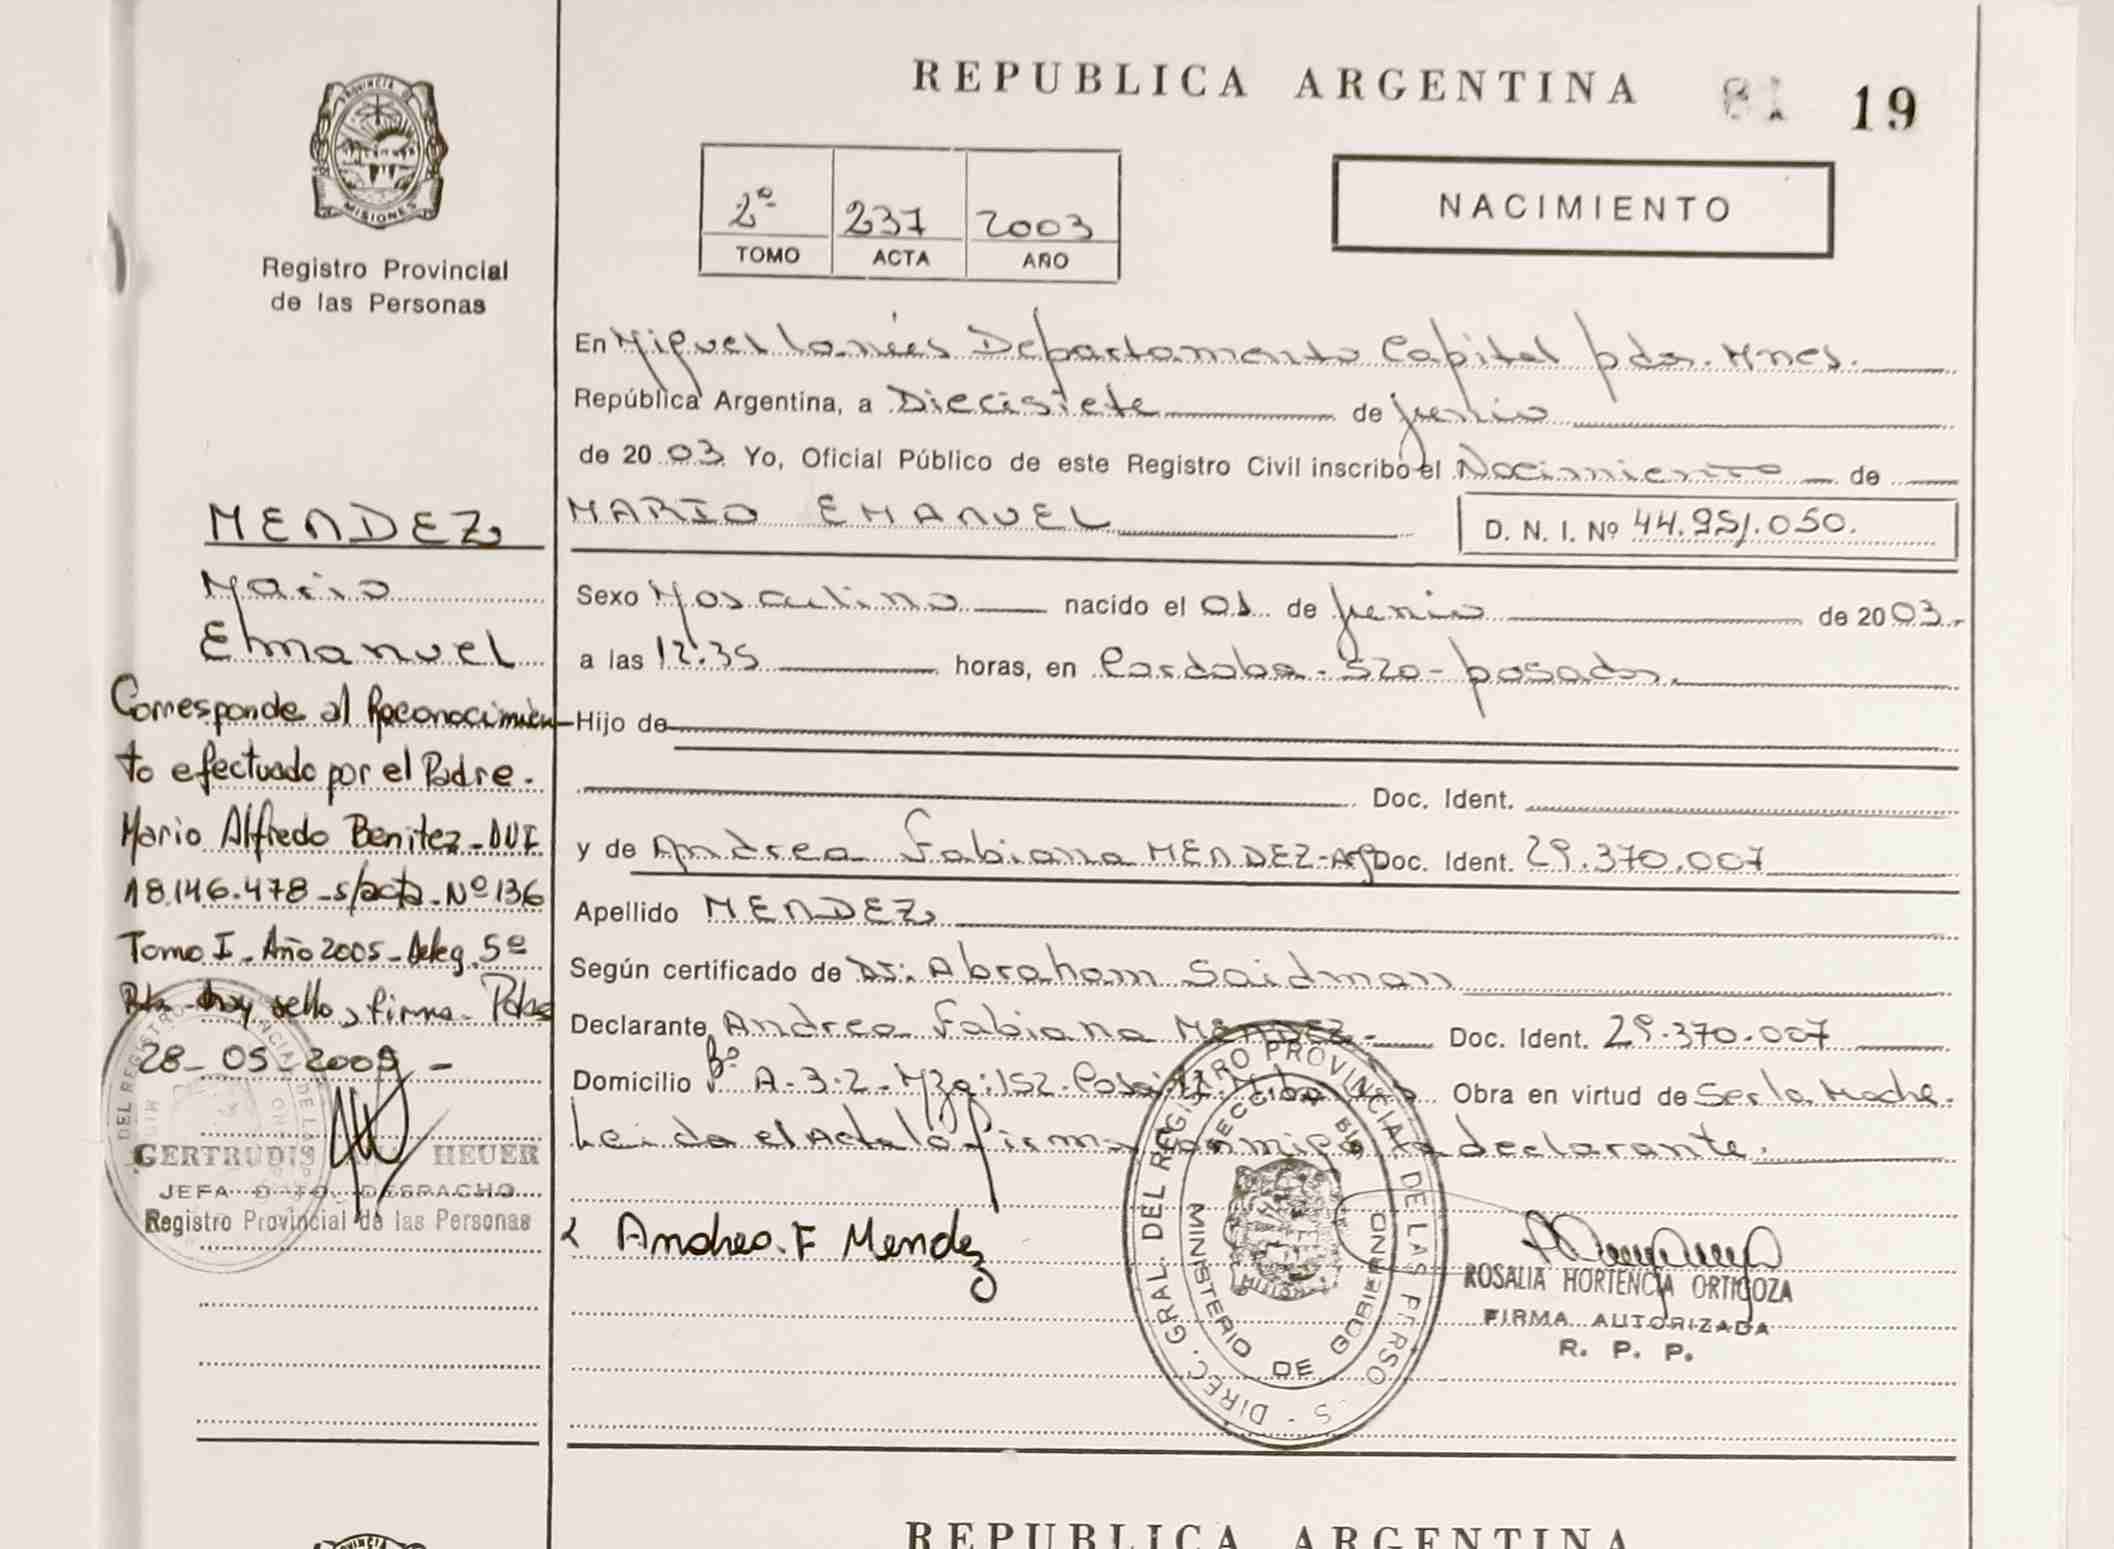 PROVINCIA DE
MISIONES
Registro Provincial
de las Personas
REPUBLICA ARGENTINA 19
2º 237 2003
TOMO ACTA AÑO
NACIMIENTO
En Miguel Lanús Departamento Capital pdas. Mnes.
República Argentina, a Diecisiete de Junio
de 2003 Yo, Oficial Público de este Registro Civil inscribo el Nacimiento de
MARIO EMANUEL
D. N. I. Nº 44.951.050.
Sexo Masculino nacido el 01 de Junio de 2003.-
a las 12:35 horas, en Cordoba - 520 - posadas.
Hijo de
Doc. Ident.
y de Andrea Fabiana MENDEZ-Arg Doc. Ident. 29.370.007
Apellido MENDEZ
Según certificado de Dr. Abraham Saidman
Declarante Andrea Fabiana MENDEZ.- Doc. Ident. 29.370.007
Domicilio Bº A-3-2-Mza:152 Obra en virtud de Ser la Madre.
Leida el Acta la firma conmigo la declarante.
Andrea. F Mendez
ROSALIA HORTENCIA ORTIGOZA
FIRMA AUTORIZADA
R. P. P.
DIREC. GRAL. DEL REGISTRO PROVINCIAL DE LAS PERSO S
MINISTERIO DE GOBIERNO
MENDEZ
Mario
Emanuel
Corresponde al Reconocimien-
to efectuado por el Padre.
Mario Alfredo Benitez - DUI
18.146.478 - s/acta - Nº 136
Tomo I - Año 2005 - Deleg. 5º
hoy sello y firma - Pdas
28 - 05 - 2009 -
GERTRUDIS HEUER
JEFA DPTO. DESPACHO
Registro Provincial de las Personas
REPUBLICA ARGENTINA